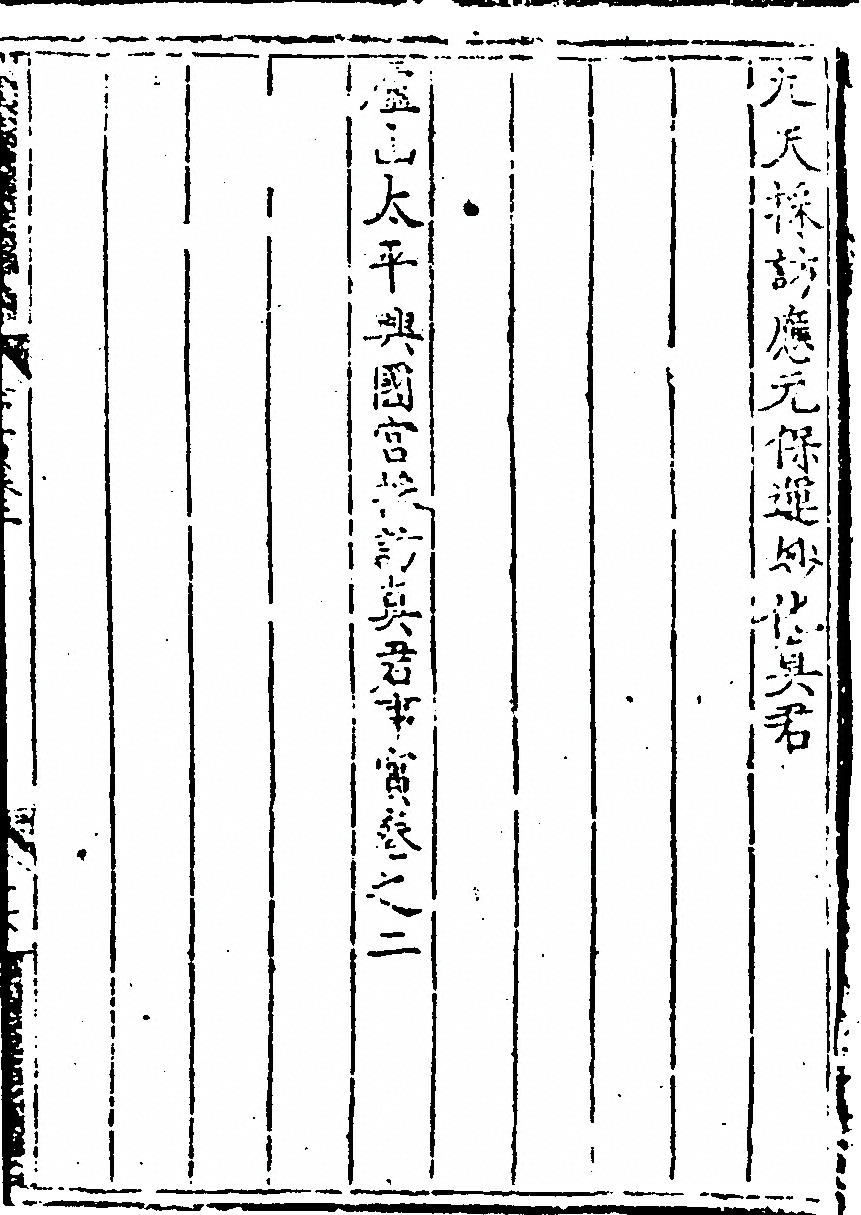 九天採訪應元保運妙化真君
廬山太平興國宮採訪真君事實卷之二